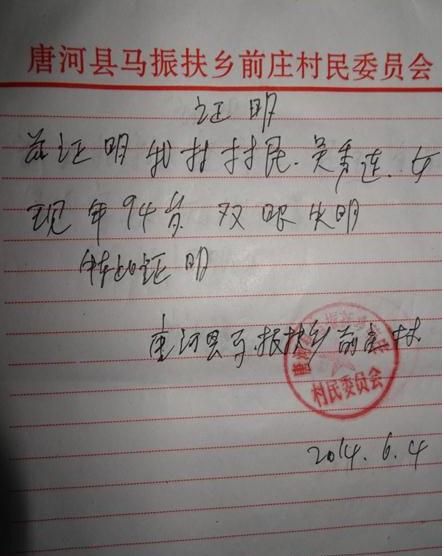 唐河县马振扶乡前庄村民委员会
证明
兹证明我村村民.吴秀连.女
现年94岁.双眼失明
特此证明
唐河县马振扶乡前庄村
村民委员会
2014.6.4